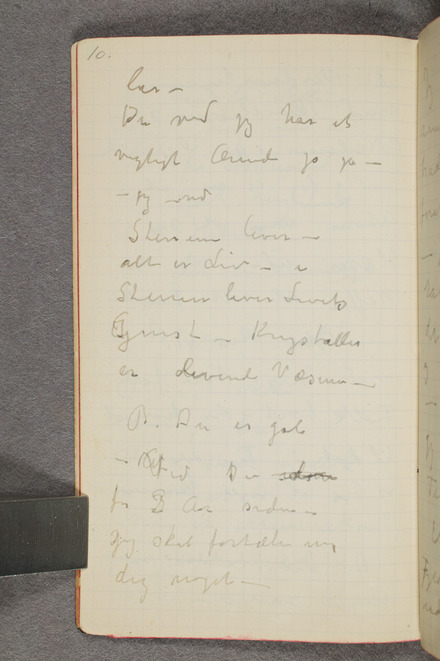 10.
Du ved jeg har et
vigtigt Ærinde jo ja –
– jeg ved
Stenene lever –
alt er Liv –
Stenene lever Livets
– Krystaller
er levende Væsener –
B. Du er gal
– Ved Du
for 3 Aar siden –
jeg skal fortælle
dig noget –